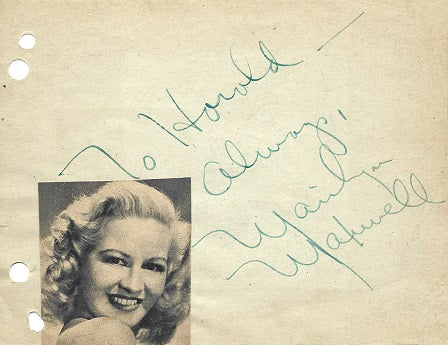 To Harold —
Always,
Marilyn
Maxwell